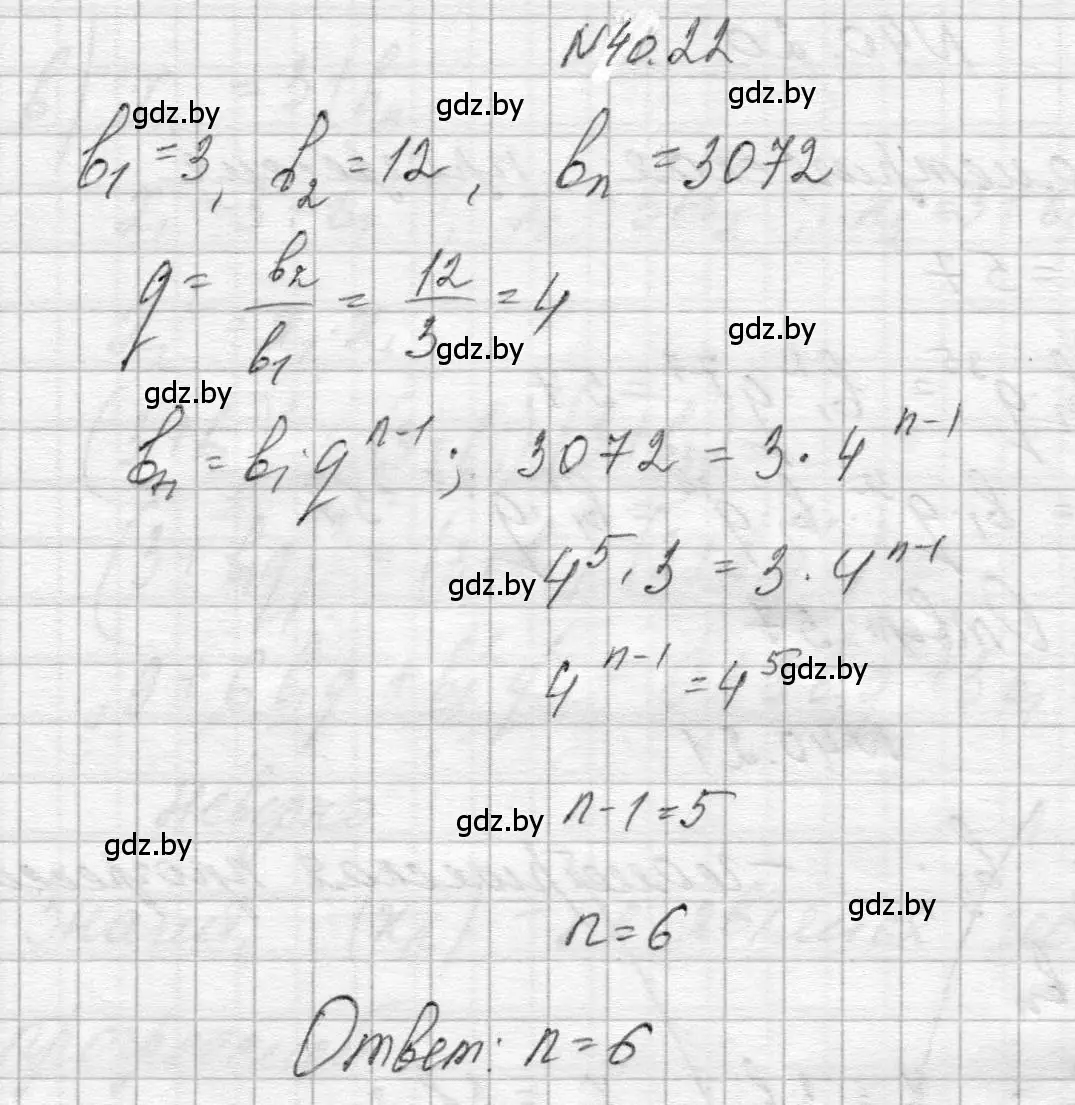 N40.22
gdz.by gdz.by gdz.by
b₁ = 3, b₂ = 12, bₙ = 3072
q = b₂/b₁ = 12/3 = 4
gdz.by gdz.by
gdz.by
bₙ = b₁·qⁿ⁻¹; 3072 = 3·4ⁿ⁻¹
gdz.by 4⁵·3 = 3·4ⁿ⁻¹
4ⁿ⁻¹ = 4⁵ gdz.by
gdz.by n-1=5
gdz.by
gdz.by
n=6
Ответ: n=6